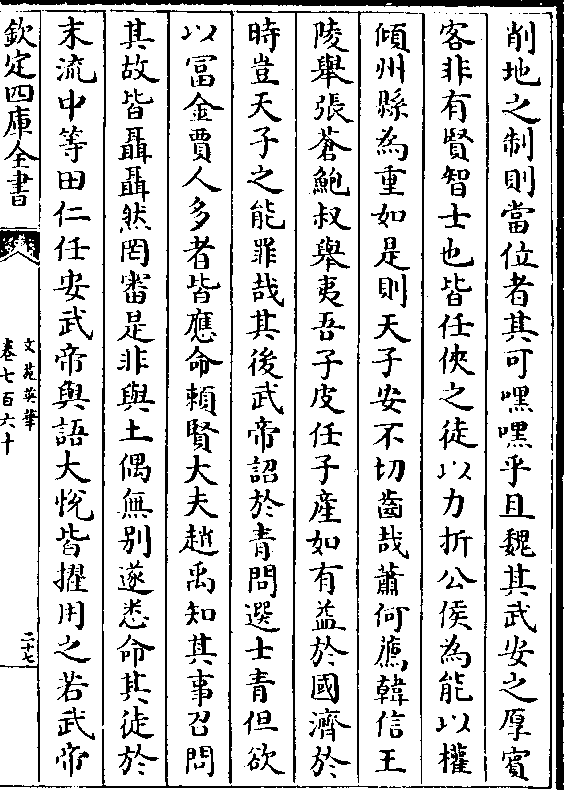 削地之制則當位者其可嘿嘿乎且魏其武安之厚賓
客非有賢智士也皆任俠之徒以力折公侯為能以權
傾州縣為重如是則天子安不切齒哉蕭何薦韓信王
陵舉張蒼鮑叔舉夷吾子皮任子產如有益於國濟於
時豈天子之能罪哉其後武帝詔於青問選士青但欲
以冨金賈人多者皆應命賴賢大夫趙禹知其事召問
其故皆聶聶然罔審是非與土偶無别遂悉命其徒於
末流中等田仁任安武帝與語大悅皆擢用之若武帝
欽定四庫全書
文苑英華
卷七百六十
二十七